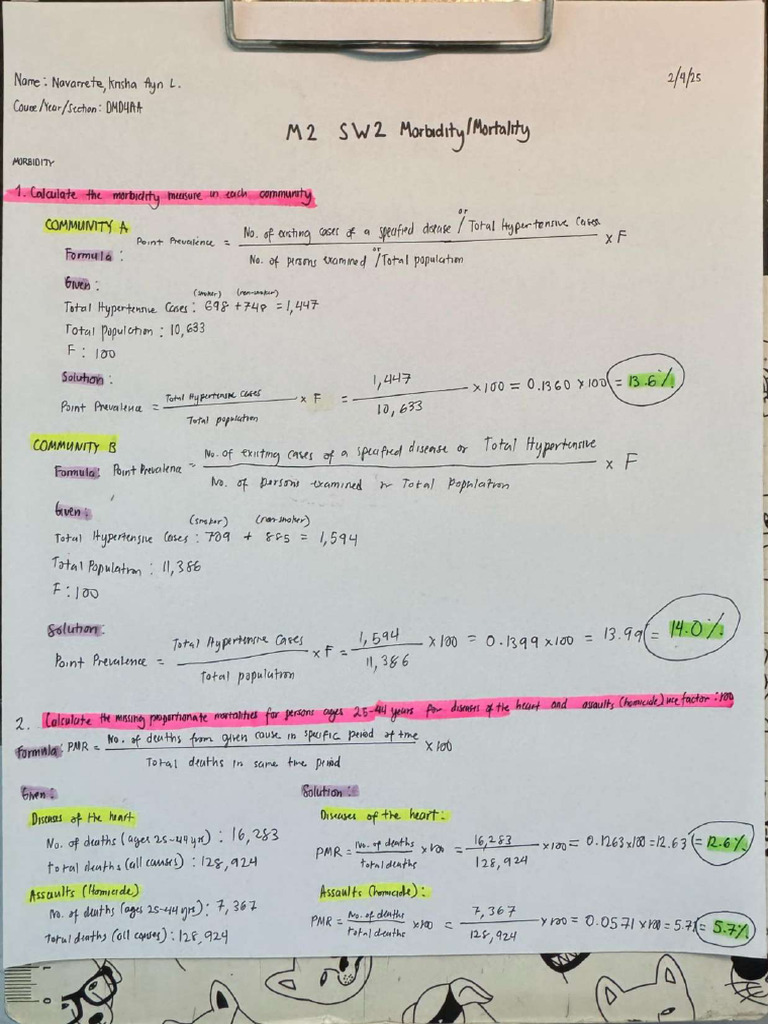 Name: Navarrete, Krisha Ayn L.
2/4/25
Course/Year/Section: DMD4AA
M2 SW2 Morbidity/Mortality
MORBIDITY
1. Calculate the morbidity measure in each community
COMMUNITY A
Formula: Point Prevalence = No. of existing cases of a specified disease or / Total Hypertensive Cases
No. of persons examined or / Total population × F
Given:
(smoker) (non-smoker)
Total Hypertensive Cases: 698 + 748 = 1,447
Total Population: 10,633
F: 100
Solution:
Point Prevalence = Total Hypertensive Cases / Total population × F = 1,447 / 10,633 × 100 = 0.1360 × 100 = 13.6%
COMMUNITY B
Formula: Point Prevalence = No. of existing cases of a specified disease or Total Hypertensive
No. of persons examined or Total Population × F
Given:
(smoker) (non-smoker)
Total Hypertensive Cases: 709 + 885 = 1,594
Total Population: 11,386
F: 100
Solution:
Point Prevalence = Total Hypertensive Cases / Total population × F = 1,594 / 11,386 × 100 = 0.1399 × 100 = 13.99 = 14.0%
2. Calculate the missing proportionate mortalities for persons ages 25-44 years for diseases of the heart and assaults (homicide) use factor: 100
Formula: PMR = No. of deaths from given cause in specific period of time / Total deaths in same time period × 100
Given:
Diseases of the heart
No. of deaths (ages 25-44 yr): 16,283
total deaths (all causes): 128,924
Assaults (Homicide)
No. of deaths (ages 25-44 yrs): 7,367
Total deaths (all causes): 128,924
Solution:
Diseases of the heart:
PMR = No. of deaths / total deaths × 100 = 16,283 / 128,924 × 100 = 0.1263 × 100 = 12.63 = 12.6%
Assaults (homicide):
PMR = No. of deaths / total deaths × 100 = 7,367 / 128,924 × 100 = 0.0571 × 100 = 5.71 = 5.7%